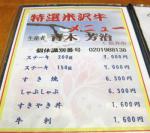 特選米沢牛
メニュー
生産者 青木 芳治
個体識別番号 0201988138
ステーキ 200g 7,000円
ステーキ 150g 6,000円
すき焼 6,300円
しゃぶしゃぶ 6,300円
すきやき丼 1,600円
牛刺 1,600円